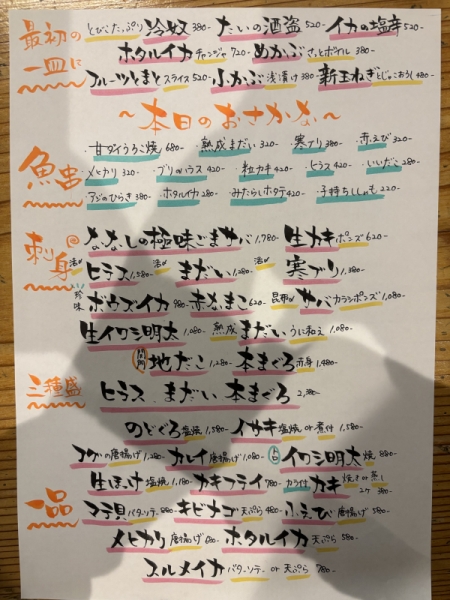 最初の一皿に
とびこたっぷり 冷奴 380- たいの酒盗 520- イカの塩辛 520-
ホタルイカ チャンジャ 720- めかぶ さっとボイル 380-
フルーツとまと スライス 520- ふかぶ 浅漬け 380- 新玉ねぎ 480-
〜本日のおさかな〜
魚串
・甘ダイうろこ焼 680- ・熟成まだい 320- ・寒ブリ 380- ・赤えび 320-
・メヒカリ 320- ・ブリのハラス 420- ・粒カキ 420- ・ヒラス 420- ・いいだこ 280-
・アジのひらき 380- ・ホタルイカ 280- ・みたらしホタテ 420- ・子持ちししゃも 220-
刺身
ななしの極味ごまサバ 1,780- 生カキ ポンズ 620-
活〆 ヒラス 1,580- 活〆 まだい 1,280- 活〆 寒ブリ 1,380-
珍味 ボウズイカ 980- 赤なまこ 620- 昆布〆 サバ カラシポンズ 1,080-
生イワシ明太 1,080- 熟成 まだい うに和え 1,080-
関門 地だこ 1,280- 本まぐろ 赤身 1,480-
三種盛
ヒラス、まだい 本まぐろ 2,380-
一品
のどぐろ 塩焼 1,580- イサキ 塩焼 or 煮付 1,580-
コダイの唐揚げ 1,280- カレイ 唐揚げ 1,080- トロ イワシ明太 焼 880-
生ほっけ 塩焼 1,180- カキフライ 780- カラ付 カキ 焼き or 蒸し 2ケ 380-
マテ貝 バターソテー 880- キビナゴ 天ぷら 480- ふえび 唐揚げ 580-
メヒカリ 唐揚げ 600- ホタルイカ 天ぷら 580-
スルメイカ バターソテー or 天ぷら 780-